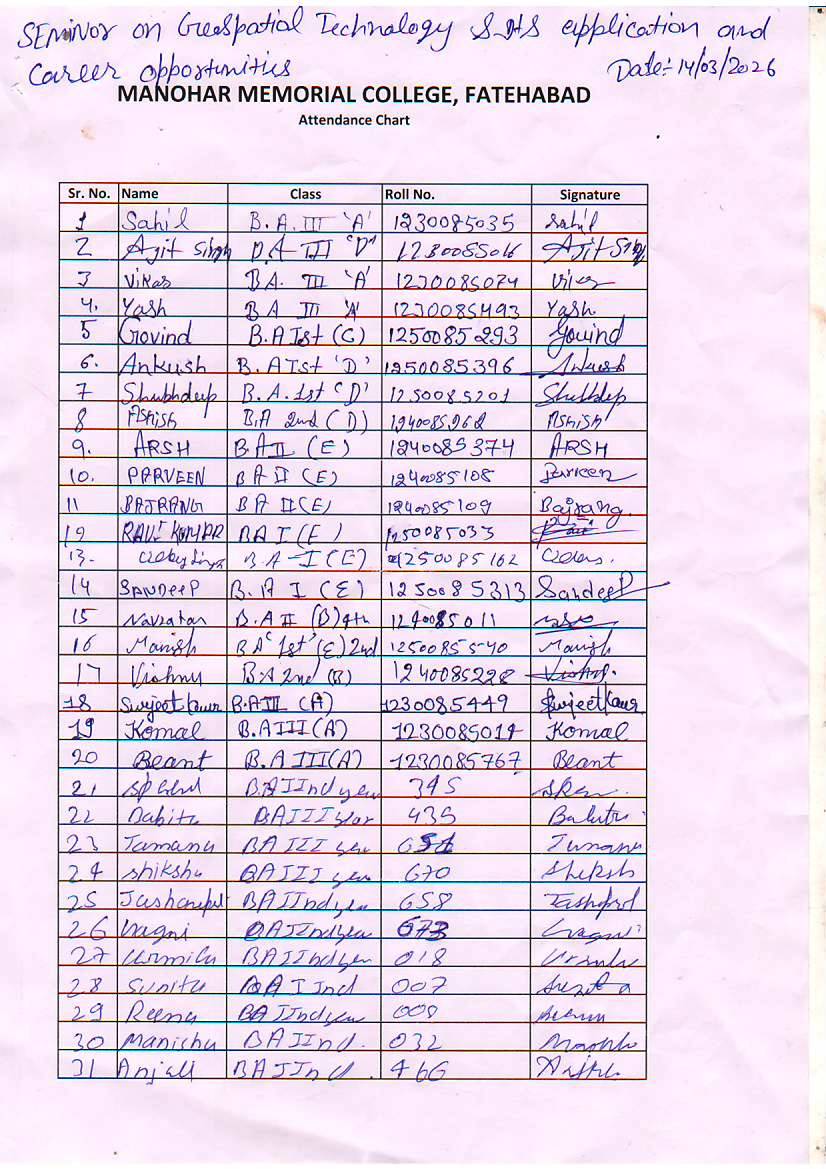 Seminar on GeoSpatial Technology & its application and
Career opportunities Date:- 14/03/2026
MANOHAR MEMORIAL COLLEGE, FATEHABAD
Attendance Chart
Sr. No. Name Class Roll No. Signature
1 Sahil B.A.III 'A' 1230085035 Sahil
2 Ajit Singh B.A III 'D' 1230085016 Ajit Singh
3 Vikas B.A. III 'A' 1230085074 Vikas
4. Yash B A III 'A' 1230085493 Yash
5 Govind B.A Ist (G) 1250085293 Govind
6. Ankush B.A Ist 'D' 1250085396 Ankush
7 Shubhdeep B.A.1st 'D' 1250085201 Shubhdeep
8 Ashish B.A 2nd (D) 1240085262 Ashish
9. ARSH B.A II (E) 1240085374 ARSH
10. PARVEEN B A II (E) 1240085108 Parveen
11 BAJRANG B A II (E) 1240085109 Bajrang.
12 RAVI KUMAR BA I (E) 1250085033
13. B.A-I (E) 1250085162
14 SANDEEP B.A I (E) 1250085313 Sandeep
15 Navratan B.A II (B) 4th 1240085011
16 Manish BA '1st' (E) 2nd 1250085540 Manish
17 Vishnu B.A 2nd (B) 1240085228 Vishnu.
18 Surjeet Kaur B.A III (A) 1230085449 Surjeet Kaur
19 Komal B.A III (A) 1230085014 Komal
20 Beant B.A III (A) 1230085767 Beant
21 BA IInd year 345
22 BA III year 435
23 Tamana BA III year
24 Shiksha BA III year 670
25 BA IInd year 658
26 BA IInd year 673
27 Urmila BA IInd year 018
28 Sunita BA IInd 007 Sunita
29 Reena BA IInd year 009
30 Manisha BA IInd. 032
31 Anjali BA IInd. 466